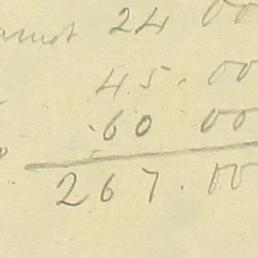 24 00
45. 00
60 00
267.00